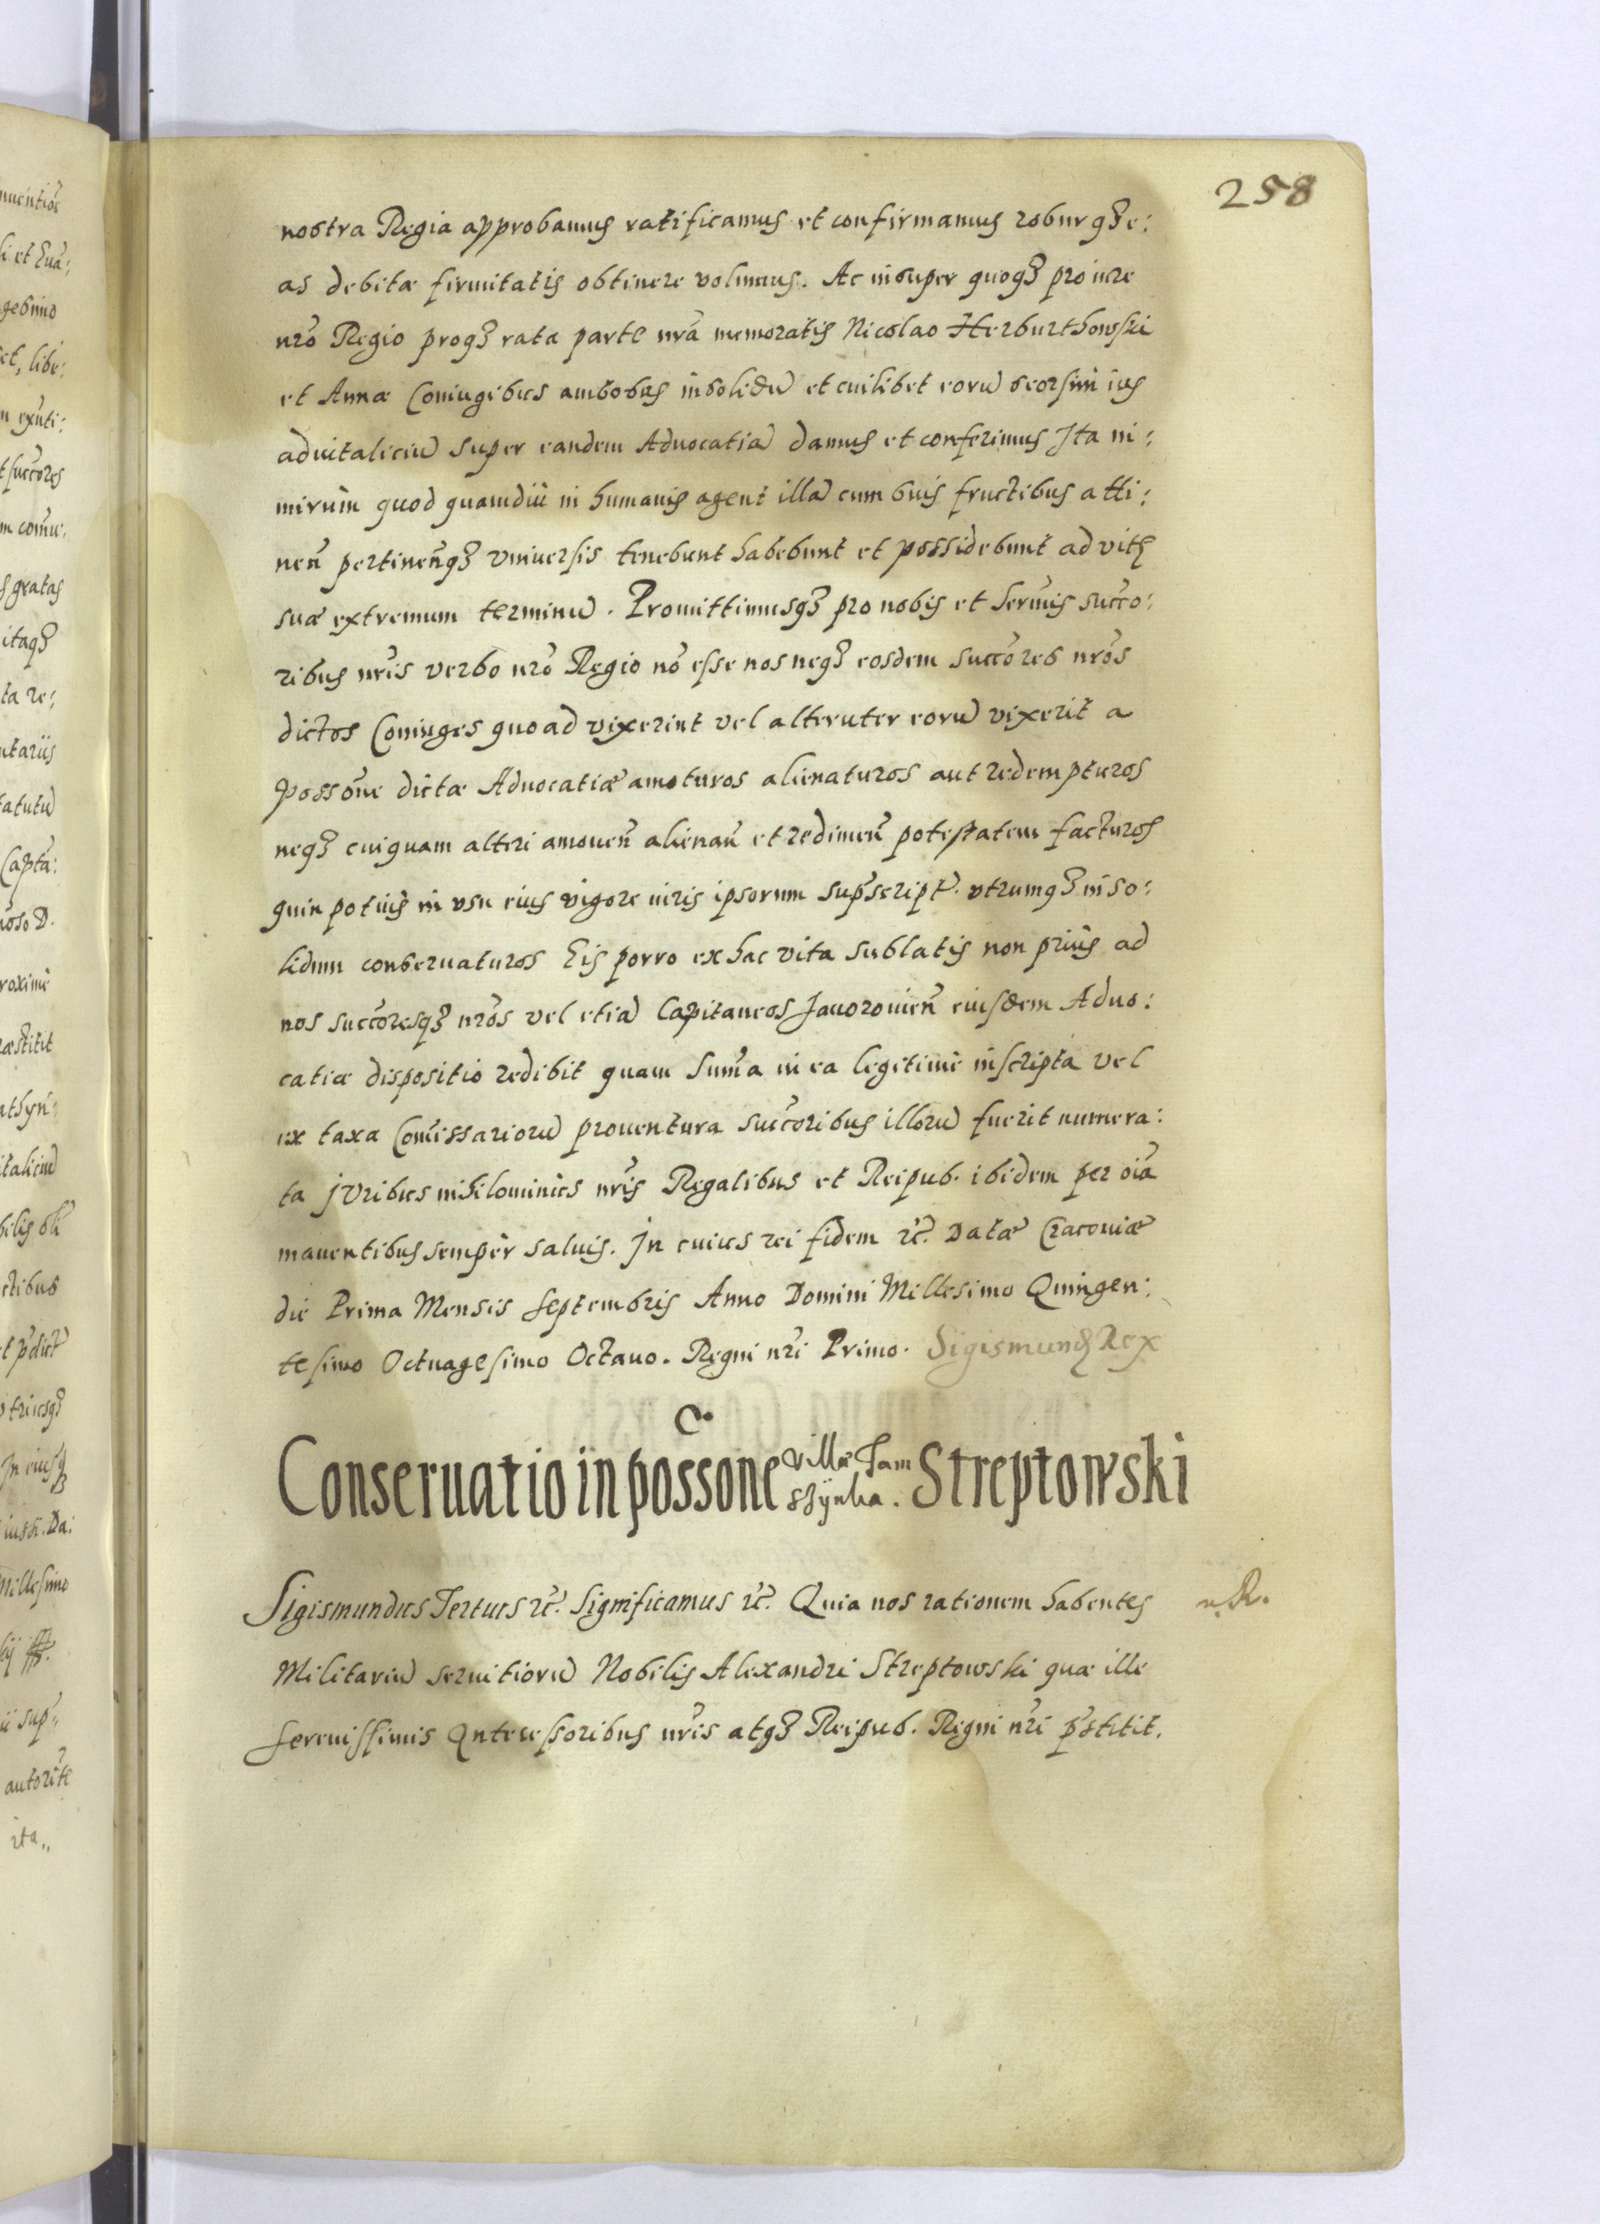 258
nostra Regia approbamus ratificamus et confirmamus robur qꝫ e:
as debitæ firmitatis obtinere volumus. Ac insuper quoqꝫ pro iure
nr̃o Regio proqꝫ rata parte nr̃a memoratis Nicolao Herburthowski
et Annæ Coniugibus ambobus insolidũ et cuilibet eorũ seorsim ius
aduitaliciũ super eandem Aduocatiã damus et conferimus Ita ni:
mirum quod quamdiu in humanis agent illã cum suis fructibus atti:
nen̄ pertinen̄qꝫ vniuersis tenebunt habebunt et possidebunt ad vitę
suæ extremum terminũ. Promittimusqꝫ pro nobis et Serm̃is succo:
ribus nr̃is verbo nr̃o Regio nõ esse nos neqꝫ eosdem succores nr̃os
dictos Coniuges quoad vixerint vel alteruter eorũ vixerit a
possõne dictæ Aduocatiæ amoturos alienaturos aut redempturos
neqꝫ cuiquam alteri amouen̄ alienan̄ et redimen̄ potestatem facturos
quin potius in vsu eius vigore iuris ipsorum supscript. vtrumqꝫ inso:
lidum conseruaturos Eis porro ex hac vita sublatis non prius ad
nos succoresqꝫ nr̃os vel etiã Capitaneos Jauorouien̄ eiusdem Aduo:
catiæ dispositio redibit quam sum̃a in ea legitime inscripta vel
ex taxa Com̃issariorũ prouentura succoribus illorũ fuerit numera:
ta Juribus nihilominus nr̃is Regalibus et Reipub. ibidem per oĩa
manentibus semper saluis. In cuius rei fidem rc̃. Datæ Cracouiæ
die Prima Mensis Septembris Anno Domini Millesimo Quingen:
tesimo Octuagesimo Octauo. Regni nr̃i Primo. Sigismundꝰ Rex
Conseruatio in possone villæ Jam
sÿnka. Streptowski
Sigismundus Tertius rc̃. Significamus rc̃. Quia nos rationem habentes
n. R.
Militariũ seruitiorũ Nobilis Alexandri Streptowski quæ ille
serenissimis Antecessoribus nr̃is atqꝫ Reipub. Regni nr̃i p̃stitit.